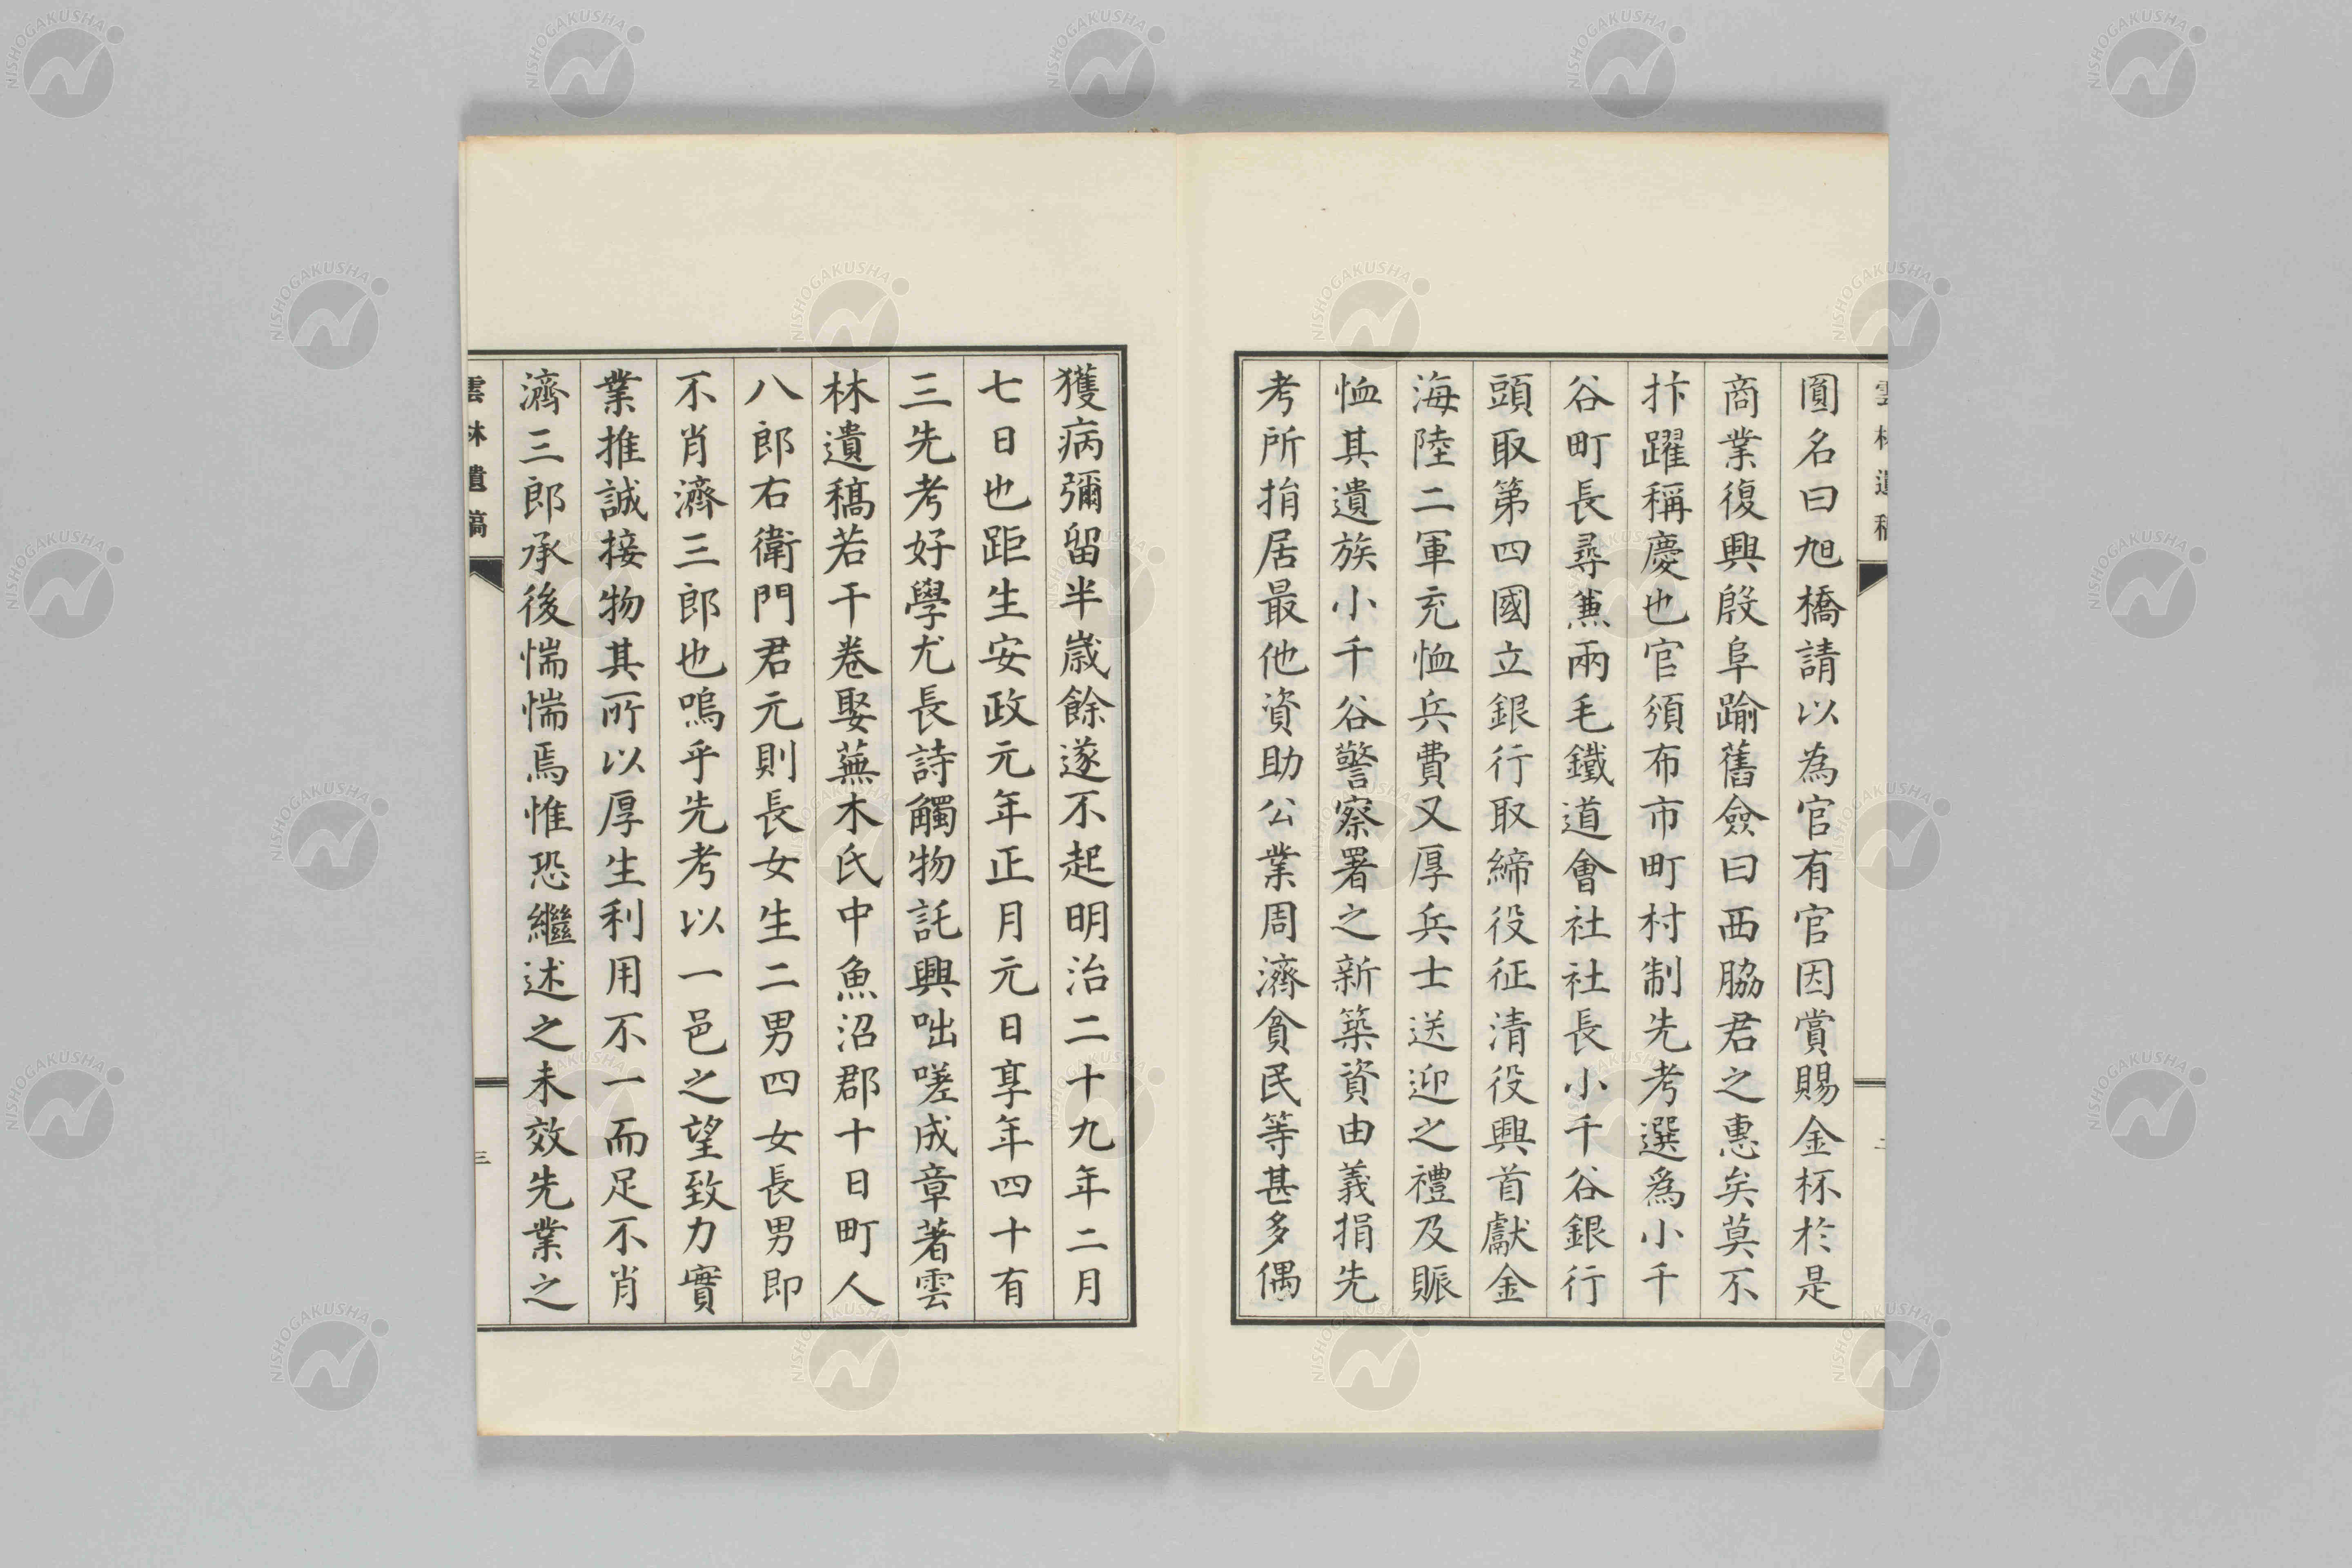 圓名曰旭橋請以為官有官因賞賜金杯於是
商業復興殷阜踰舊僉曰西脇君之惠矣莫不
抃躍稱慶也官須布市町村制先考選為小千
谷町長尋蒹兩毛鐵道會社社長小千谷銀行
頭取第四國立銀行取締役征清役興首獻金
海陸二軍充恤兵費又厚兵士送迎之禮及賑
恤其遺族小千谷警察署之新築資由義捐先
考所捐居最他資助公業周濟貧民等甚多偶
獲病彌留半歲餘遂不起明治二十九年二月
七日也距生安政元年正月元日享年四十有
三先考好學尤長詩觸物託興咄嗟成章著雲
林遺稿若干卷娶蕪木氏中魚沼郡十日町人
八郎右衛門君元則長女生二男四女長男即
不肖濟三郎也嗚乎先考以一邑之望致力實
業推誠接物其所以厚生利用不一而足不肖
濟三郎承後惴惴焉惟恐繼述之未效先業之
雲林遺稿
三